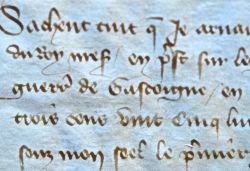 Sachent tuit q Je arnau
du roy mess en pst sur le
guerre de Gascoigne en
trois cens vint cinq liu
souz mon seel le pmier